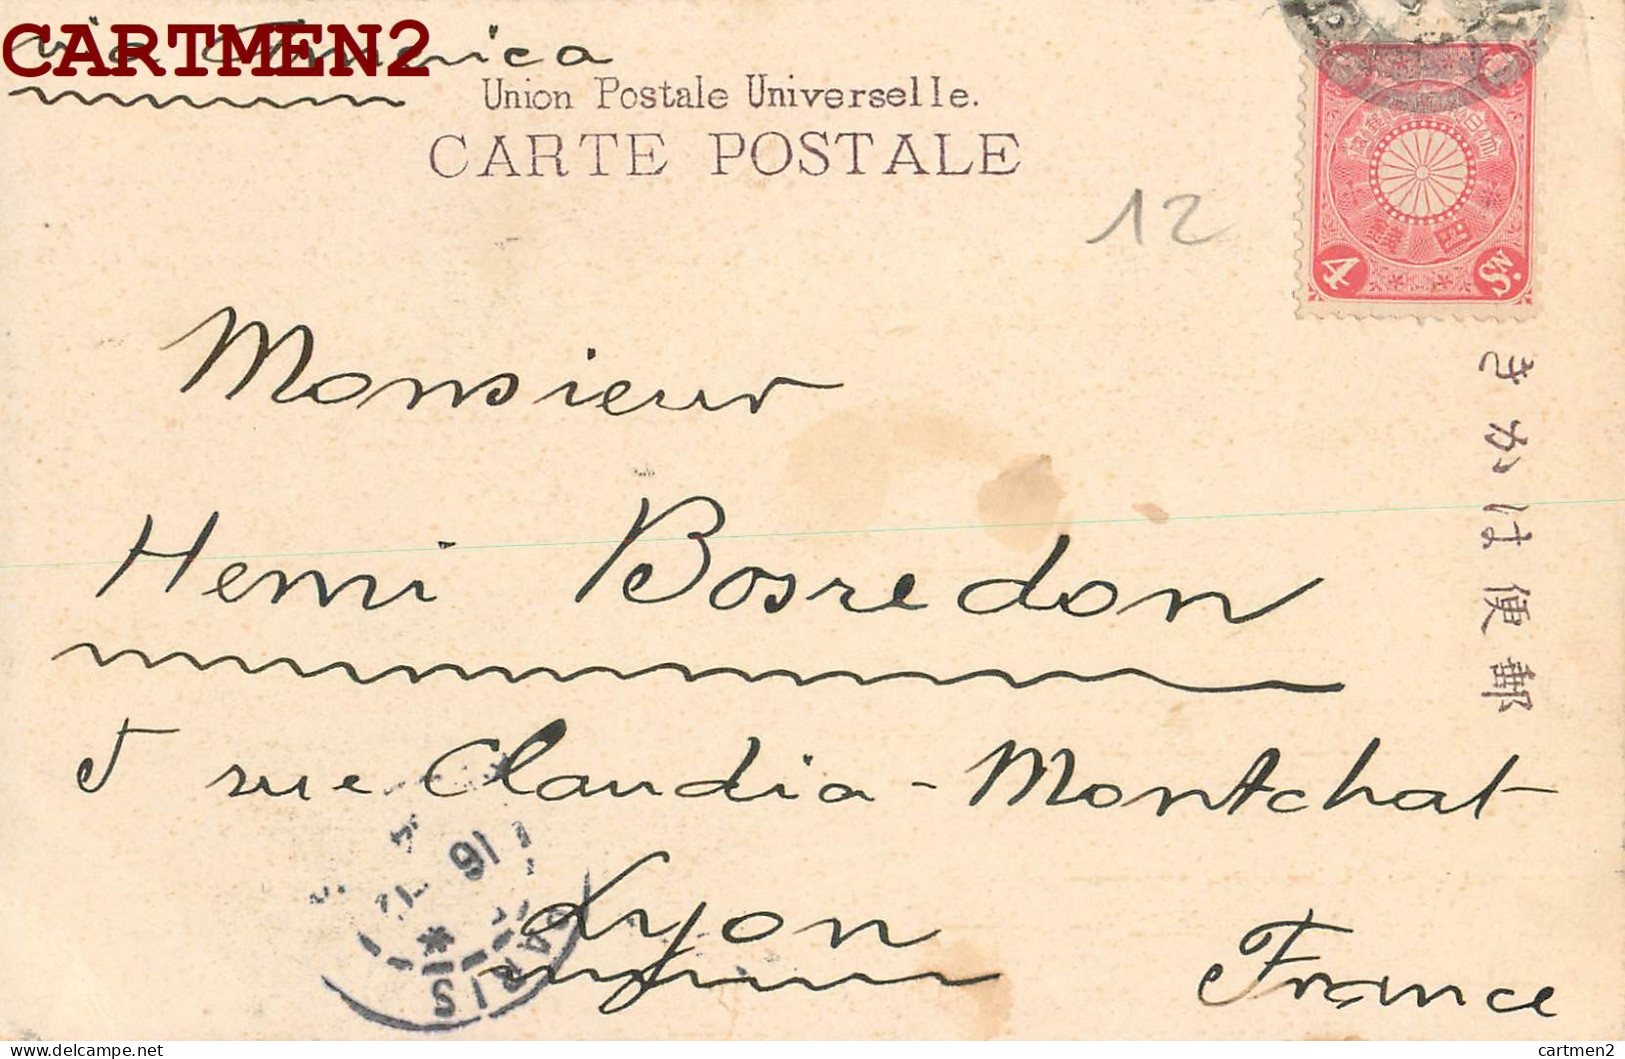 CARTMEN2
via America
Union Postale Universelle.
CARTE POSTALE
12
4
5
Monsieur
Henri Bosredon
5 rue Claudia-Montchat
Lyon
France
きかは便郵
16
PARIS
delcampe.net
cartmen2